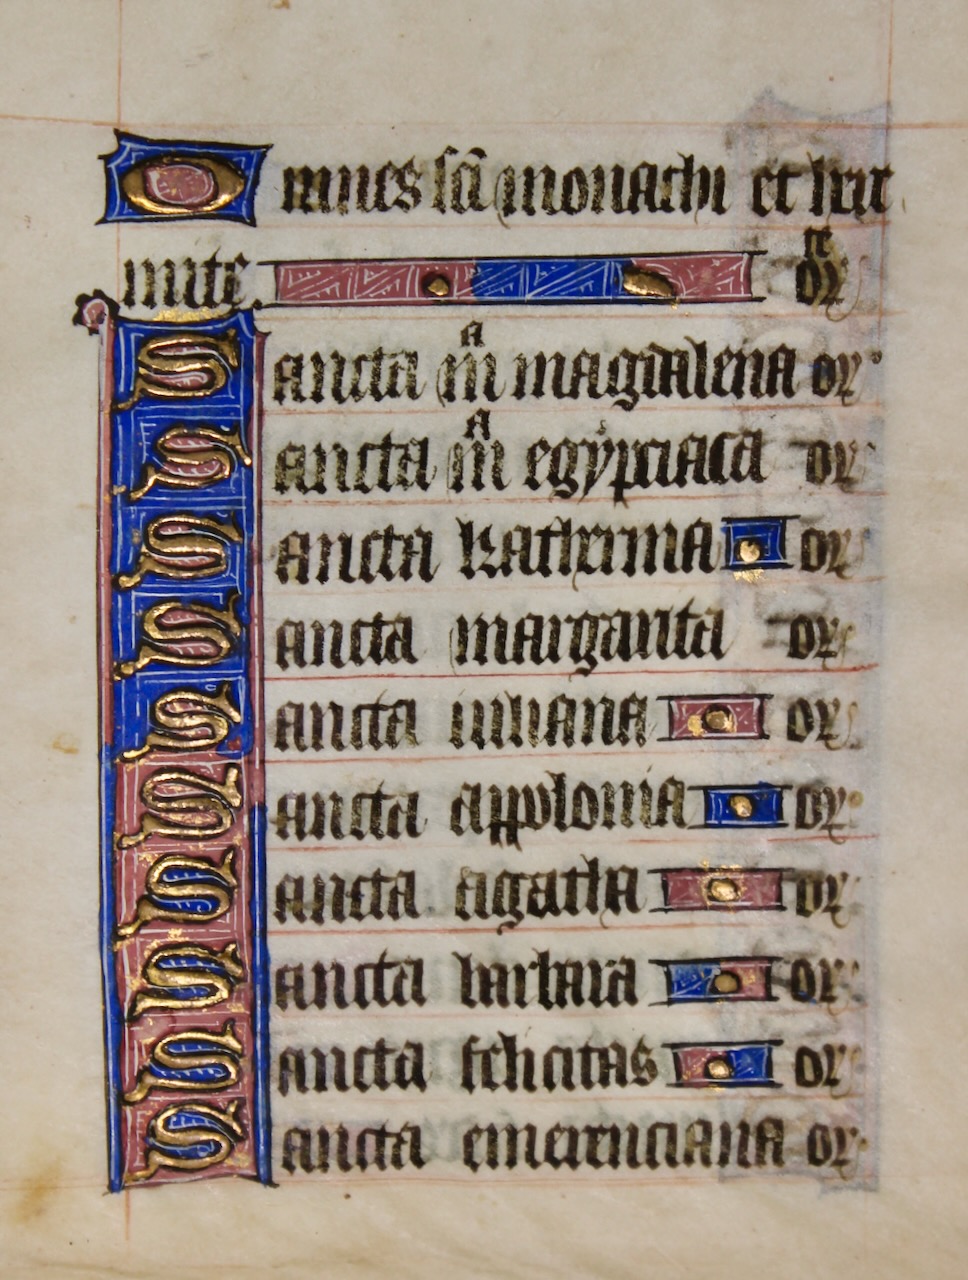 Omnes sc̄i monachi et her
mite orte
Sancta ma magdalena or
Sancta ma egypciaca or
Sancta katherina or
Sancta margarita or
Sancta iuliana or
Sancta appolonia or
Sancta agatha or
Sancta barbara or
Sancta felicitas or
Sancta emerenciana or